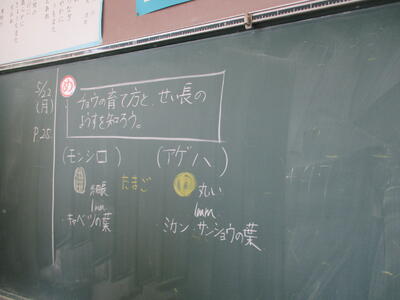 5/22
(月)
P.25
め
チョウの育て方と、せい長の
ようすを知ろう。
(モンシロ)
(アゲハ)
細長
1mm
・キャベツの葉
たまご
丸い
1mm
・ミカン・サンショウの葉